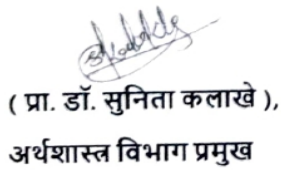 ( प्रा. डॉ. सुनिता कलाखे ),
अर्थशास्त्र विभाग प्रमुख